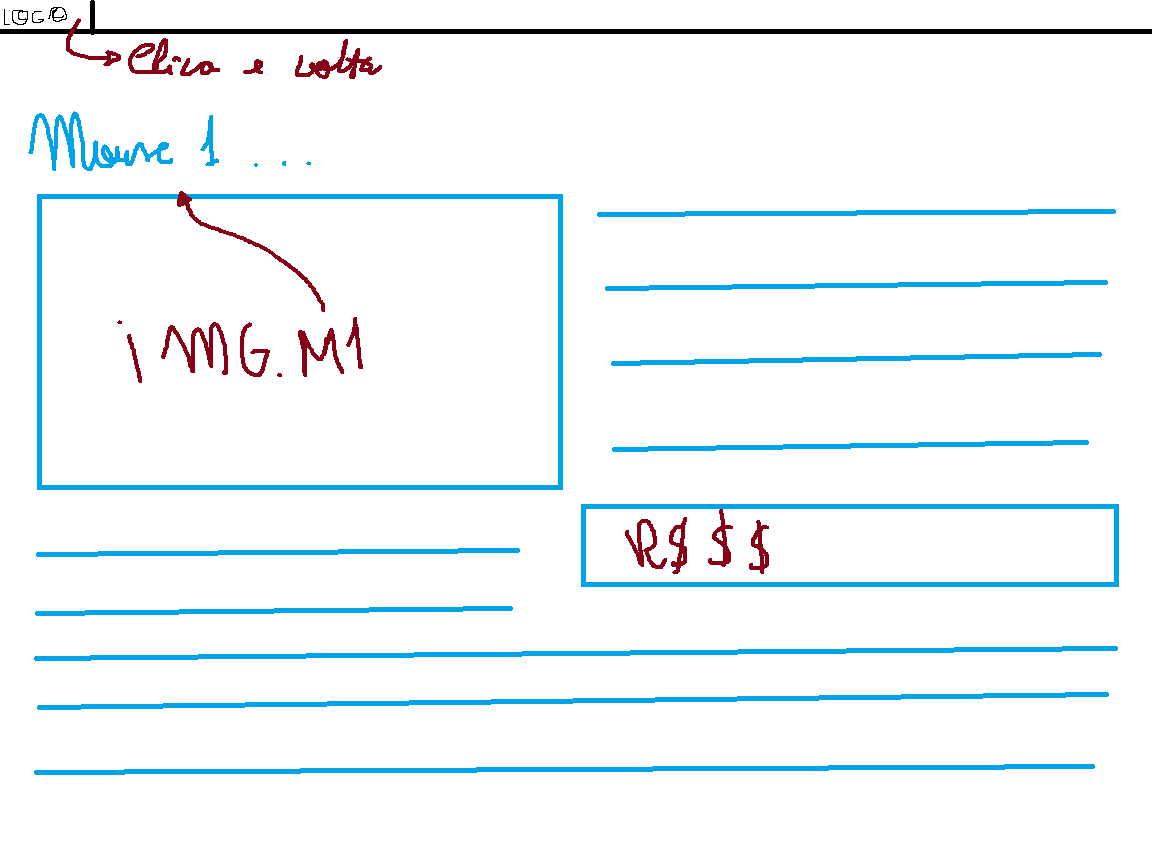 LOGO
Clica e volta
Mouse 1 ...
iMG.M1
R$ $ $